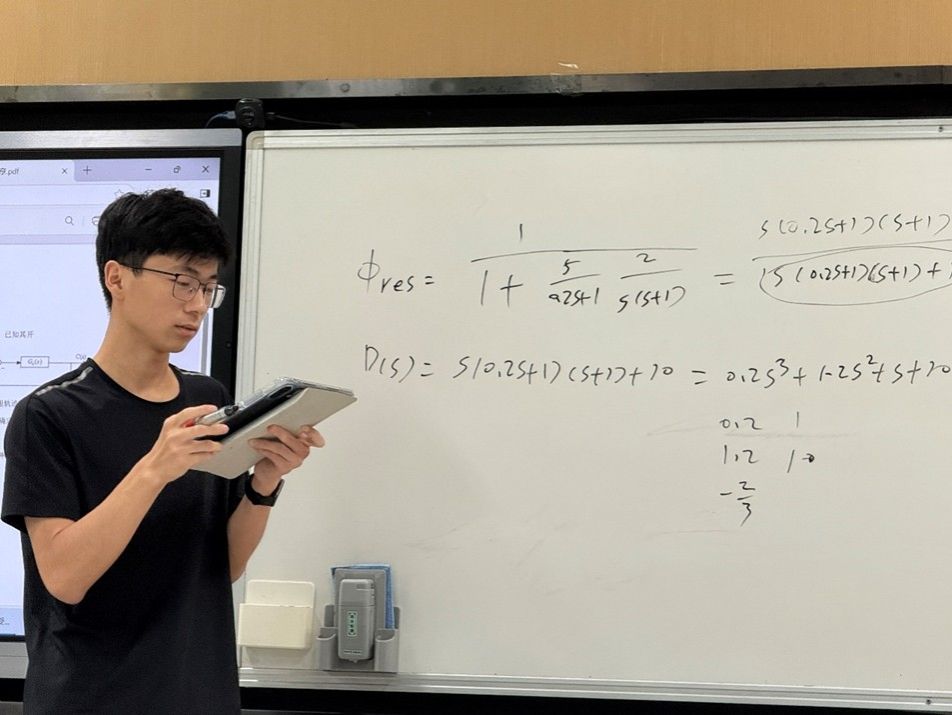 .pdf
已知其开
G₀(s) C(s)
Φres = 1 / (1 + 5/(0.2s+1) 2/(s(s+1))) = s(0.2s+1)(s+1) / (s(0.2s+1)(s+1)+1
D(s) = s(0.2s+1)(s+1)+10 = 0.2s³+1.2s²+s+10
0.2 1
1.2 10
-2/3